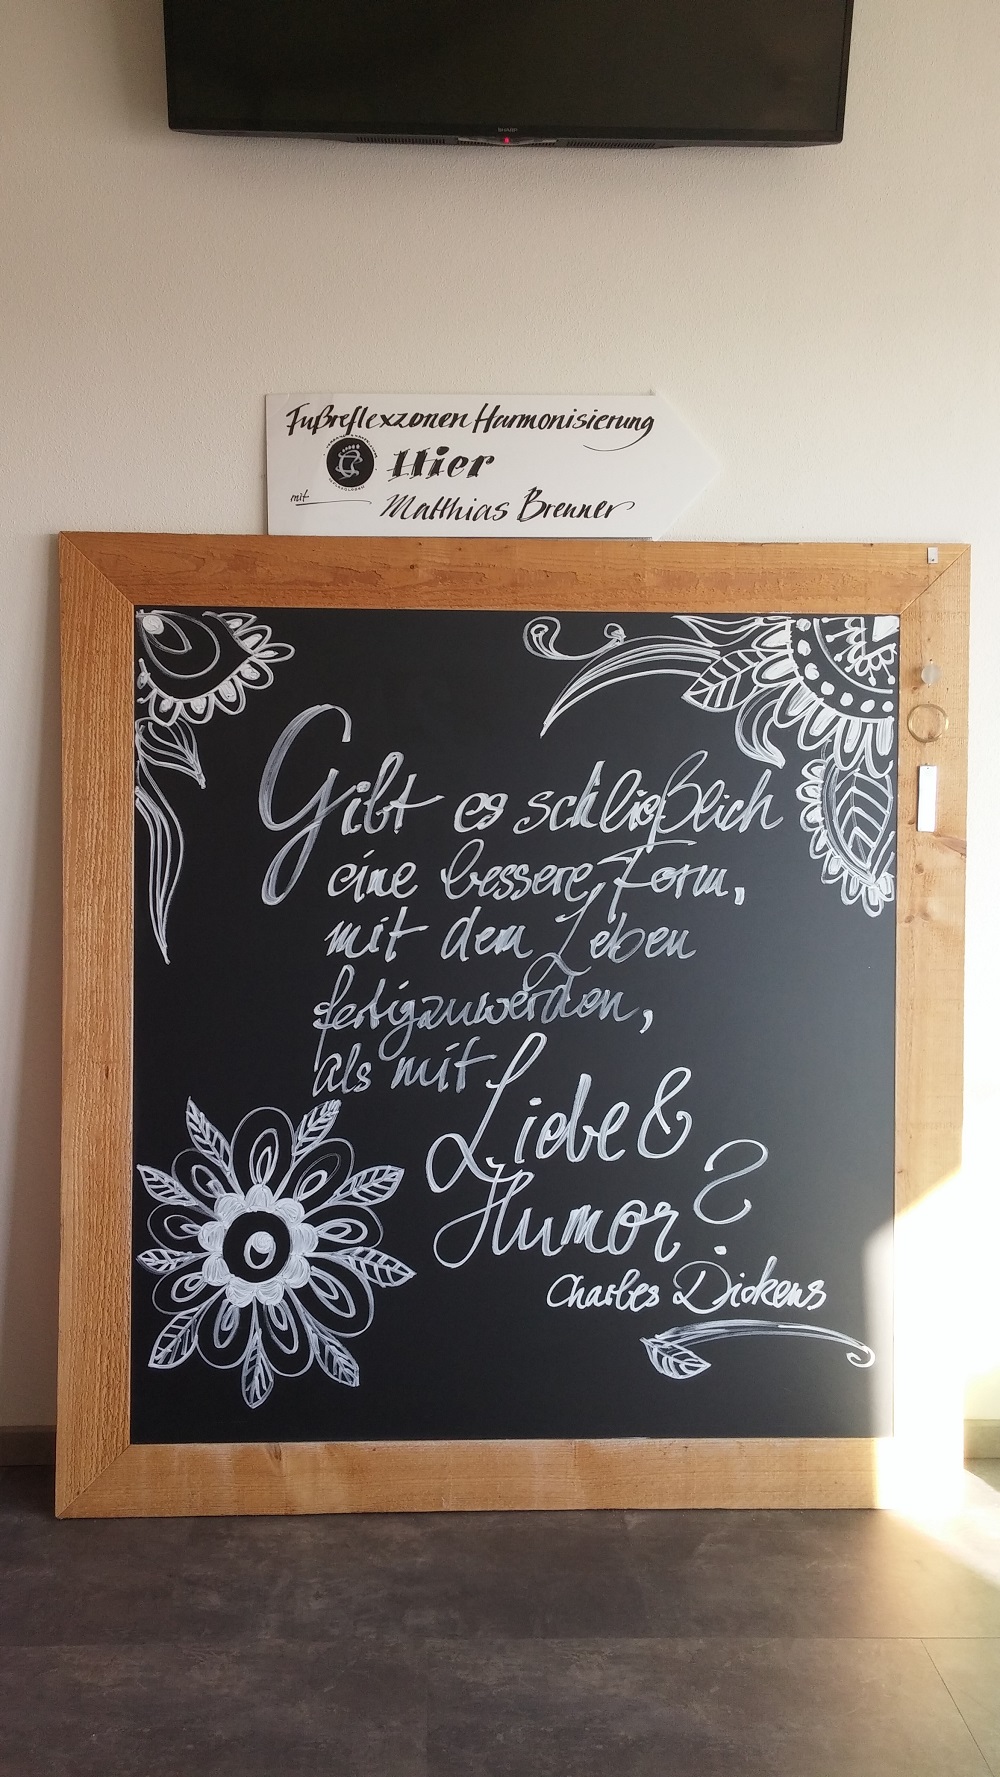 SHARP
Fußreflexzonen Harmonisierung
Hier
mit Matthias Brenner
Gibt es schließlich
eine bessere Form,
mit dem Leben
fertigzuwerden,
als mit
Liebe &
Humor?
Charles Dickens